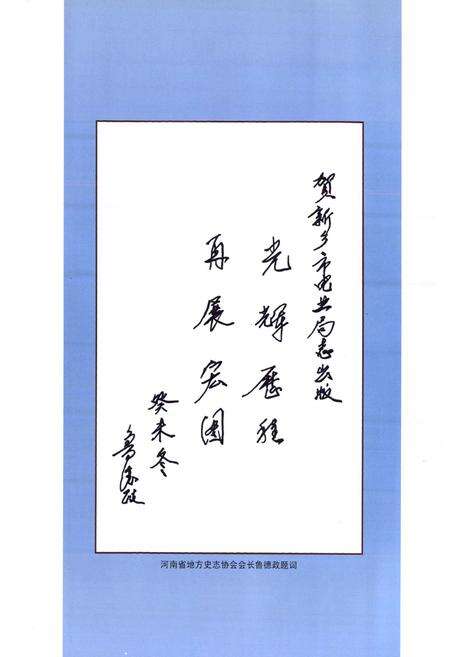 贺新乡市电业局志出版
光辉历程
再展宏图
癸未冬
鲁德政
河南省地方史志协会会长鲁德政题词